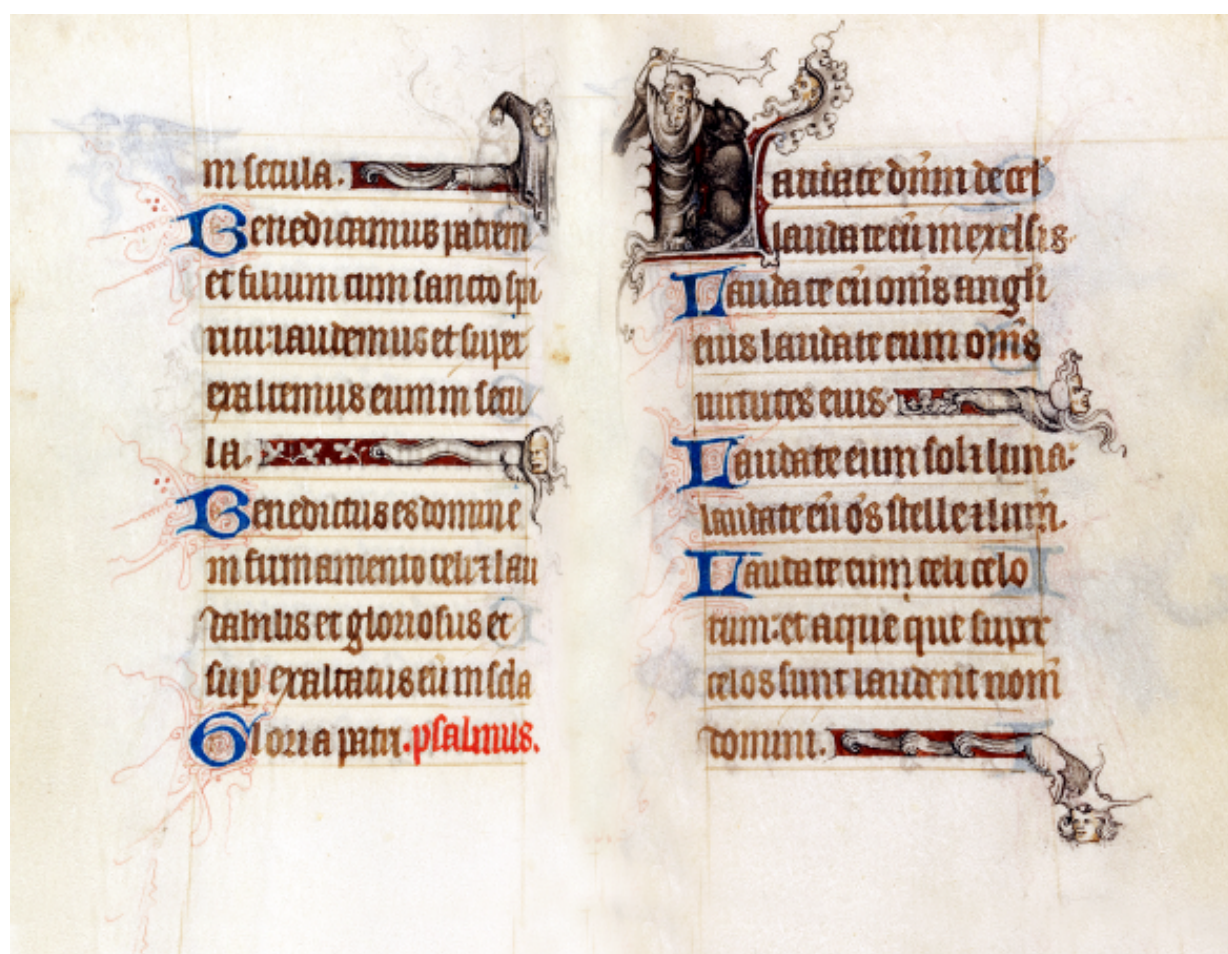 in secula.
Benedicamus patrem
et filium cum sancto spi
ritu: laudemus et super
exaltemus eum in secu
la.
Benedictus es domine
in firmamento celi ⁊ lau
dabilis et gloriosus et
sup exaltatus eū in scła
Gloria patri. psalmus.
Laudate dn̄m de cel̄
laudate eū in excelsis.
Laudate eū om̄s angl̄i
eius laudate eum om̄s
uirtutes eius.
Laudate eum sol ⁊ luna:
laudate eū om̄s stelle ⁊ lum̄.
Laudate eum celi celo
rum: et aque que super
celos sunt laudent nom̄
domini.